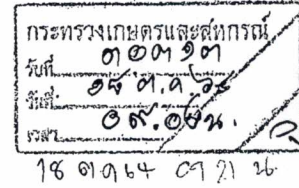 กระทรวงเกษตรและสหกรณ์
รับที่ ๓๐๓๑๓
วันที่ ๑๘ ต.ค. ๖๔
เวลา ๐๙.๐๒ น.
18 ต.ค 64 09 21 น.